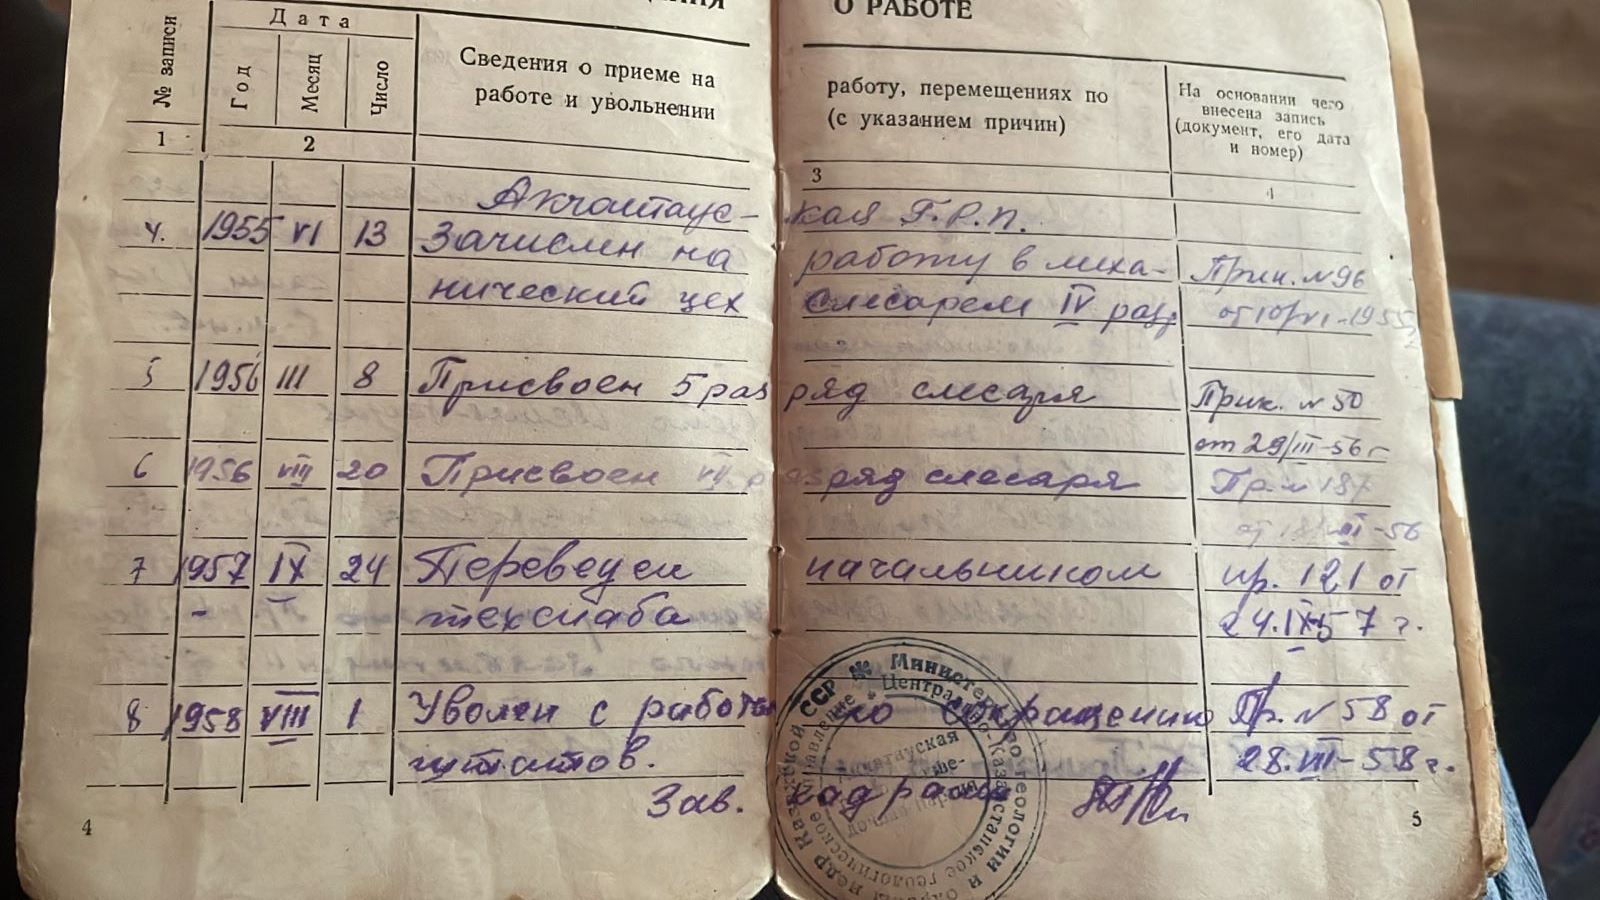 О РАБОТЕ
№ записи
Дата
Год
Месяц
Число
Сведения о приеме на
работе и увольнении
работу, перемещениях по
(с указанием причин)
На основании чего
внесена запись
(документ, его дата
и номер)
1
2
3
4
Акчатаус- кая Г.Р.П.
4. 1955 VI 13 Зачислен на работу в меха- Прик. №96
нический цех слесарем IV разр. от 10/VI-1955
5 1956 III 8 Присвоен 5 раз ряд слесаря Прик. № 50
от 29/III-56 г
6 1956 VIII 20 Присвоен ряд слесаря Пр. № 187
-56
7 1957 IX 24 Переведен начальником пр. 121 от
- техснаба 24.IX-57 г.
8 1958 VIII 1 Уволен с работы по сокращению Пр. № 58 от
штатов. 28.VII-58 г.
Зав. кадрами
Министерство геологии и охраны недр Казахской ССР
Центрально-Казахстанское геологическое управление
4
5